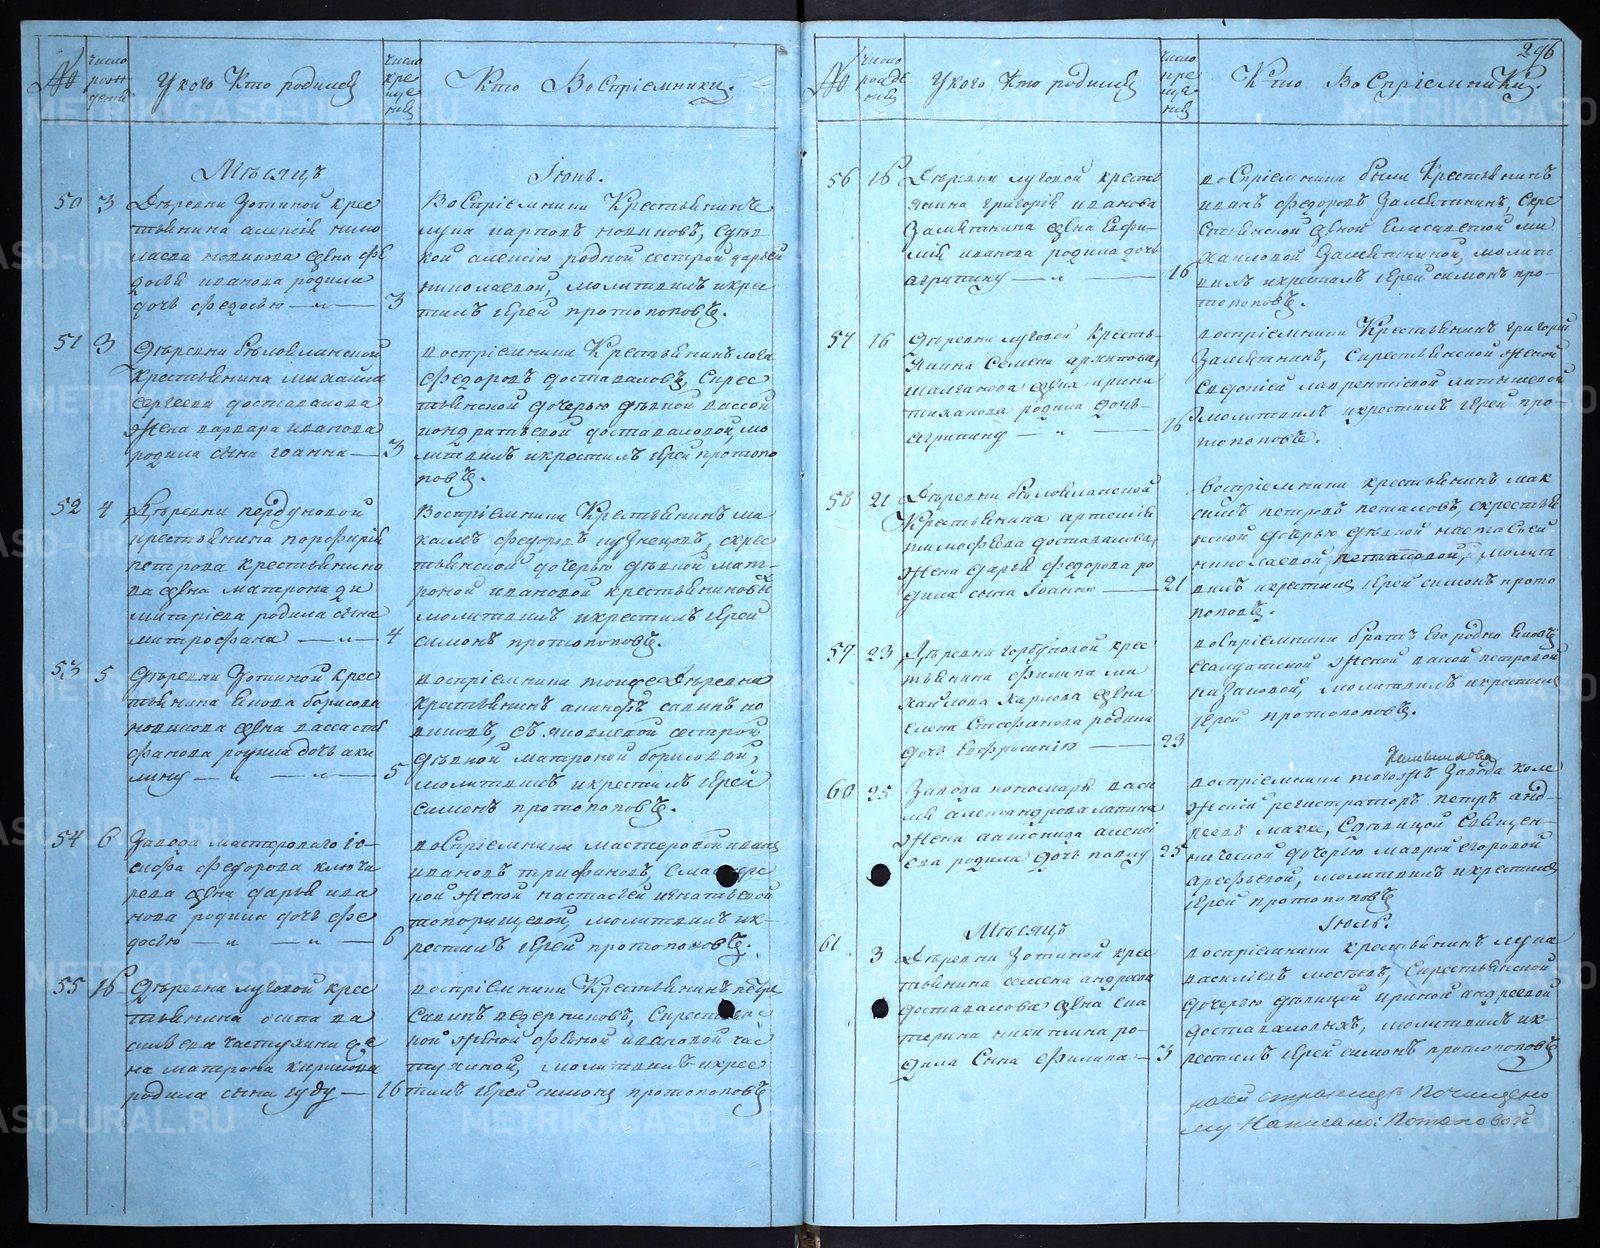 № число рожденія У кого кто родился число крещенія Кто Воспріемники.
Мѣсяцъ Іюнь.
50 3 Деревни Зотиной крес
тьянина алексія нико
лаева новикова жена фе
досья иванова родила
дочь федосью 3
Воспріемники Крестьянинъ
лука карповъ новиковъ, съдев
кой алексію родной сестрой дарьей
николаевой, молитвилъ икрес
тилъ іерей протопоповъ.
51 3 деревни бѣлояланской
крестьянина михаила
сергеева доставалова
жена варвара иванова
родила сына іоанна 3
воспріемники Крестьянинъ
федоровъ доставаловъ, Скрес
тьянской дочерью дѣвкой вассой
кондратьевой доставаловой, мо
литвилъ икрестилъ іерей протопо
повъ.
52 4 Деревни пердуновой
крестьянина порфирія
петрова крестьянино
ва жена матрона ди
митріева родила сына
митрофана 4
Воспріемники Крестьянинъ ма
ксимъ федоровъ кузнецовъ, скрес
тьянской дочерью дѣвкой мат
роной ивановой крестьяниновой
молитвилъ икрестилъ іерей
симонъ протопоповъ.
53 5 деревни Зотиной крес
тьянина Якова борисова
новикова жена васса сте
фанова родила дочь аки
лину 5
воспріемники тойже Деревни
Крестьянинъ савинъ но
виковъ, съ яковлевой сестрой
дѣвкой матроной борисовой,
молитвилъ икрестилъ іерей
симонъ протопоповъ.
54 6 Завода мастероваго іо
сифа федорова ключа
рева жена дарья ива
нова родила дочь фе
досью 6
воспріемники мастеровой иванъ
ивановъ трифоновъ, Смастерс
кой женой настасьей игнатьевой
топорищевой, молитвилъ ик
рестилъ іерей протопоповъ.
55 16 деревни луговой крес
тьянина осипа ва
сильева частухина же
на матрона кирилова
родила сына іуду 16
воспріемники Крестьянинъ петръ
савинъ ведерниковъ, Скрестьянс
кой женой офѣной ивановой час
тухиной, молитвилъ икрес
тилъ іерей симонъ протопоповъ
296
№ число рожденія У кого кто родился число крещенія Кто Воспріемники.
56 16 Деревни луговой кресть
янина григорія иванова
Замятнина жена Евфи
мія иванова родила дочь
агрипину 16
воспріемники были Крестьянинъ
иванъ федоровъ Замятнинъ, Скре
стьянской женой Елисаветой ми
хаиловой Замятниной, молит
вилъ икрестилъ іерей симонъ про
топоповъ.
57 16 деревни луговой кресть
янина Семена архипова
жена ирина
родила дочь
агрипину 16
воспріемники Крестьянинъ григорій
Замятнинъ, Скрестьянской женой
Евдокіей лаврентіевой латышевой
молитвилъ икрестилъ іерей про
топоповъ.
58 21 Деревни бѣлояланской
Крестьянина артемія
тимофеева доставалова,
жена дарья федорова ро
дила сына іоанна 21
воспріемники крестьянинъ мак
симъ петровъ поталовъ, скрестья
нской дочерью дѣвкой настасьей
николаевой поталовой, молит
вилъ икрестилъ іерей симонъ прото
поповъ.
59 23 Деревни горбуновой крес
тьянина филипа ми
хаилова жена
елена Стефанова родила
дочь Евфросинію 23
воспріемники братъ Его родно Яковъ
Ссолдатской женой анной петровой
казаковой, молитвилъ икрестилъ
іерей протопоповъ.
60 25 Завода пономаря васи
лія александрова лапина
жена антонида алексі
ева родила дочь павлу 25
воспріемники тогожъ Завода колле
жскій регистраторъ петръ анд
реевъ Сдевицей Священ
нической дочерью маврой егоровой
арефьевой, молитвилъ икрестилъ
іерей протопоповъ
Мѣсяцъ Іюль.
61 3 Деревни Зотиной крес
тьянина семена андреева
доставалова жена ека
терина никитина ро
дила Сына филипа 3
воспріемники крестьянинъ лука
васильевъ Скрестьянской
дочерью дѣвицей ириной андреевой
доставаловыхъ, молитвилъ ик
рестилъ іерей симонъ протопоповъ
насей странице Почищено